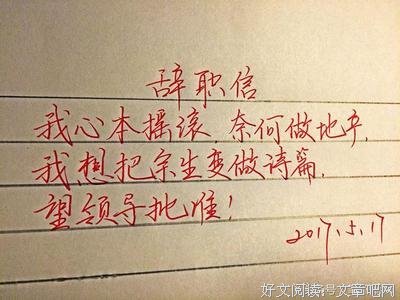 辞职信
我心本摇滚 奈何做地产,
我想把余生变做诗篇,
望领导批准!
2017.5.17
好文阅读:号文章吧网